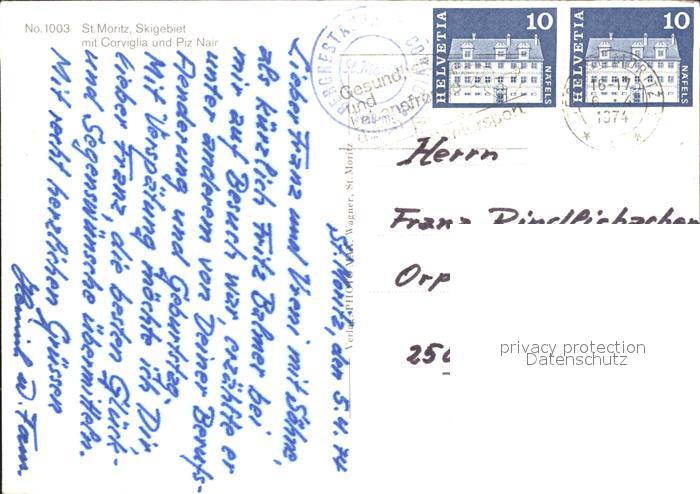 No. 1003 St. Moritz, Skigebiet
mit Corviglia und Piz Nair
HELVETIA 10 NÄFELS
HELVETIA 10 NÄFELS
Gesund
und
16-17
1974
St. Moritz, den 5.4.74
Liebe Franz und Vreni mit Söhne,
als kürzlich Fritz Balmer bei
mir auf Besuch war, erzählte er
unter anderem von Deiner Berufs-
änderung und Geburtstag.
Mit Verspätung möchte ich Dir,
lieber Franz, die besten Glück-
und Segenswünsche übermitteln.
Mit recht herzlichen Grüssen
W. Fam.
Verlag PHOTO Wagner, St. Moritz
Herrn
Franz
Orp
250
privacy protection
Datenschutz